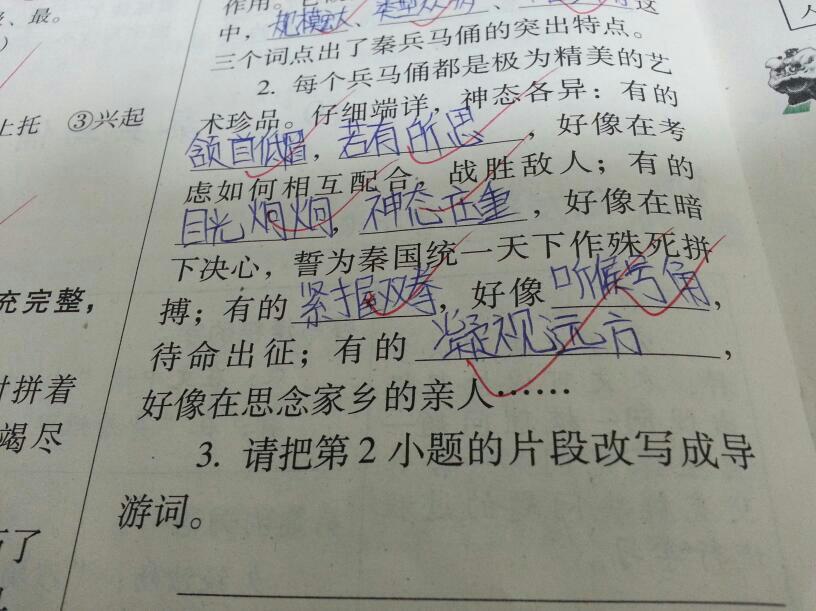 作用。
规模宏大、类型众多、
中，
这
三个词点出了秦兵马俑的突出特点。
2. 每个兵马俑都是极为精美的艺
术珍品。仔细端详，神态各异：有的
颔首低眉，若有所思，好像在考
虑如何相互配合，战胜敌人；有的
目光炯炯，神态庄重，好像在暗
下决心，誓为秦国统一天下作殊死拼
搏；有的紧握双拳，好像听候号角，
待命出征；有的凝视远方，
好像在思念家乡的亲人……
3. 请把第2小题的片段改写成导
游词。
、最。
）
上托 ③兴起
充完整，
拼着
竭尽
了